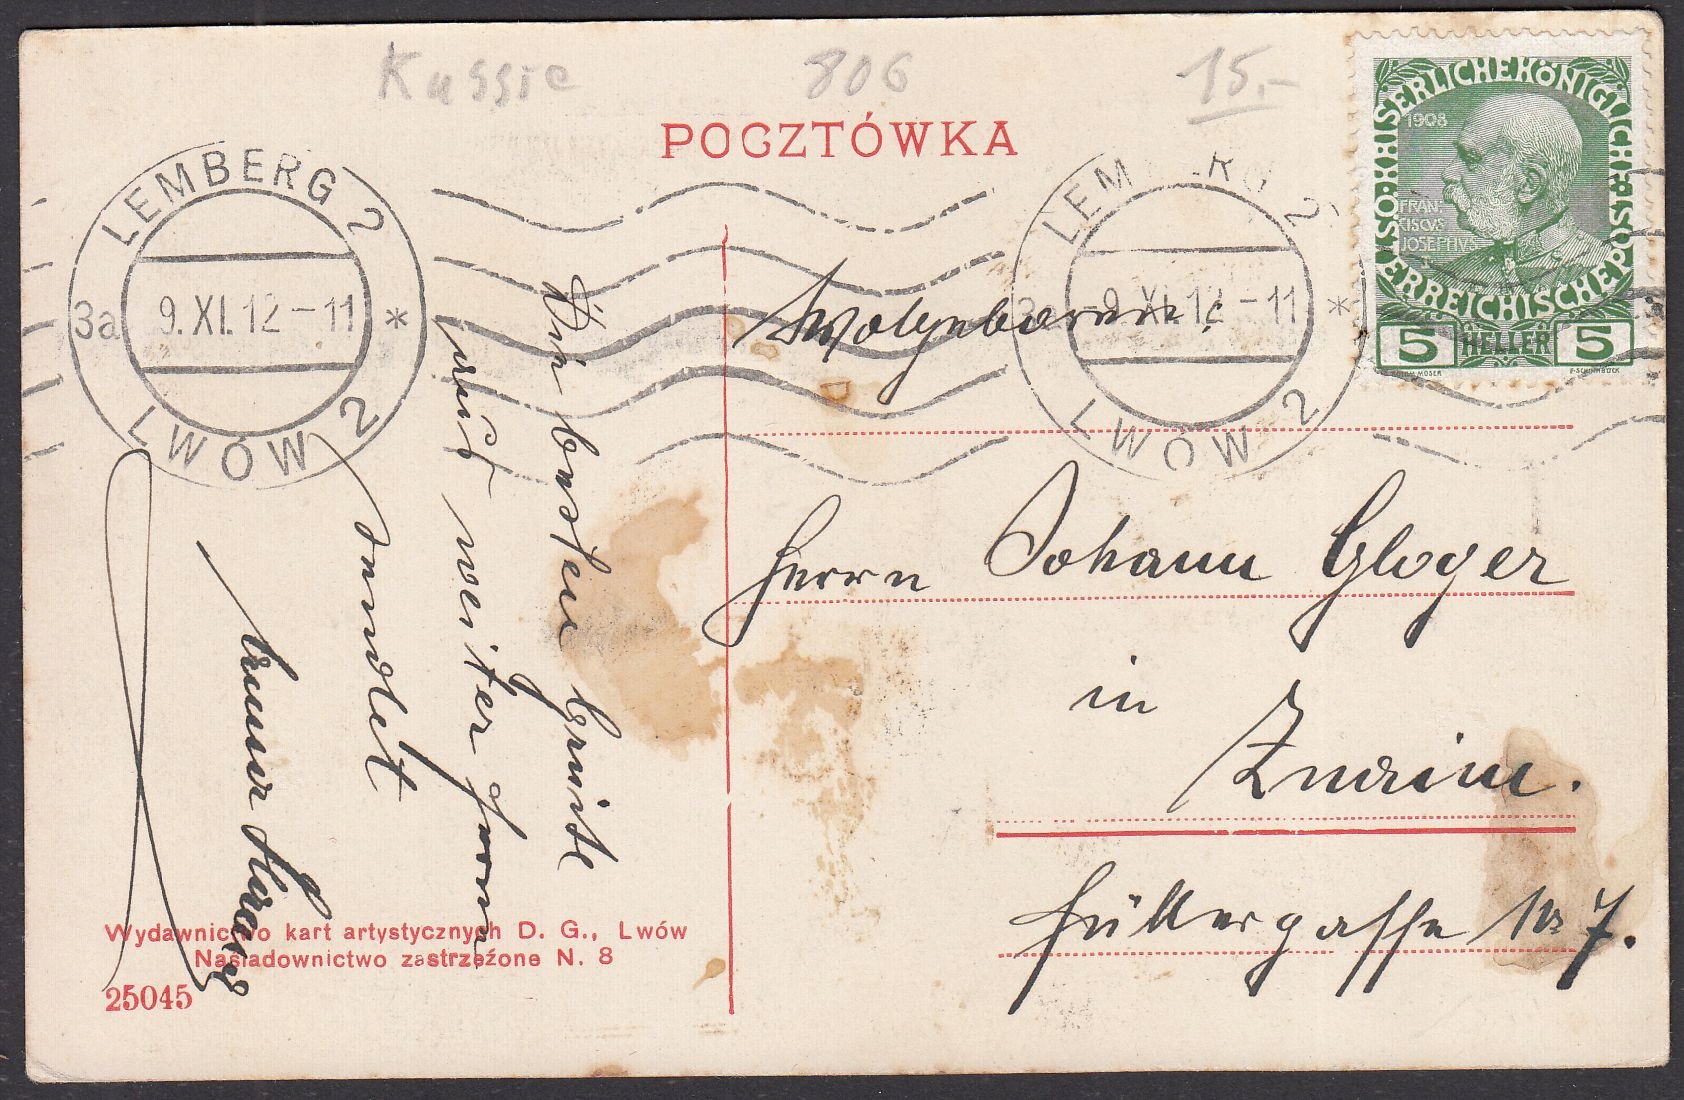 Russie 806 15.-
POCZTÓWKA
LEMBERG 2
3a 9.XI.12-11 *
LWÓW 2
LEMBERG 2
3a 9.XI.12-11 *
LWÓW 2
KAISERLICHE KÖNIGLICHE ÖSTERREICHISCHE POST
1908
FRAN-
CISCUS
JOSEPHUS
I
5 HELLER 5
Die besten Grüße
aus weiter Ferne
sendet
Herrn Johann Gloger
in
Znaim.
Füttergasse No 7.
Wydawnictwo kart artystycznych D. G., Lwów
Naśladownictwo zastrzeżone N. 8
25045